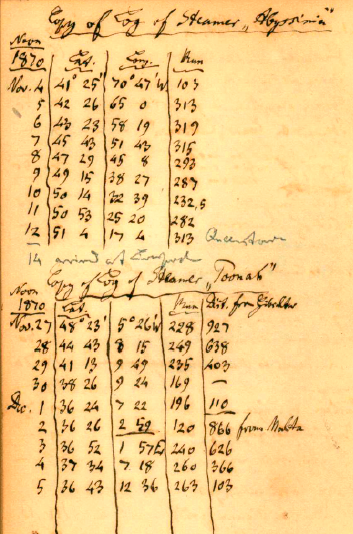 Copy of Log of Steamer "Abyssinia"
Noon
1870 Lat. Long. Run
Nov. 4 41° 25' 70° 47'W 103
5 42 26 65 0 313
6 43 23 58 19 319
7 45 43 51 43 315
8 47 29 45 8 293
9 49 15 38 27 287
10 50 14 32 39 232,5
11 50 53 25 20 282
12 51 4 17 4 313 Queenstown
14 arrived at
Copy of Log of Steamer "Poonah"
Noon
1870 Lat. Run Dist. from Gibraltar
Nov. 27 48° 23' 5° 26'W 228 927
28 44 43 8 15 249 638
29 41 13 9 49 235 403
30 38 26 9 24 169 —
Dec. 1 36 24 7 22 196 110
2 36 26 2 59 120 866 from Malta
3 36 52 1 57E 240 626
4 37 34 7 18 260 366
5 36 43 12 36 263 103